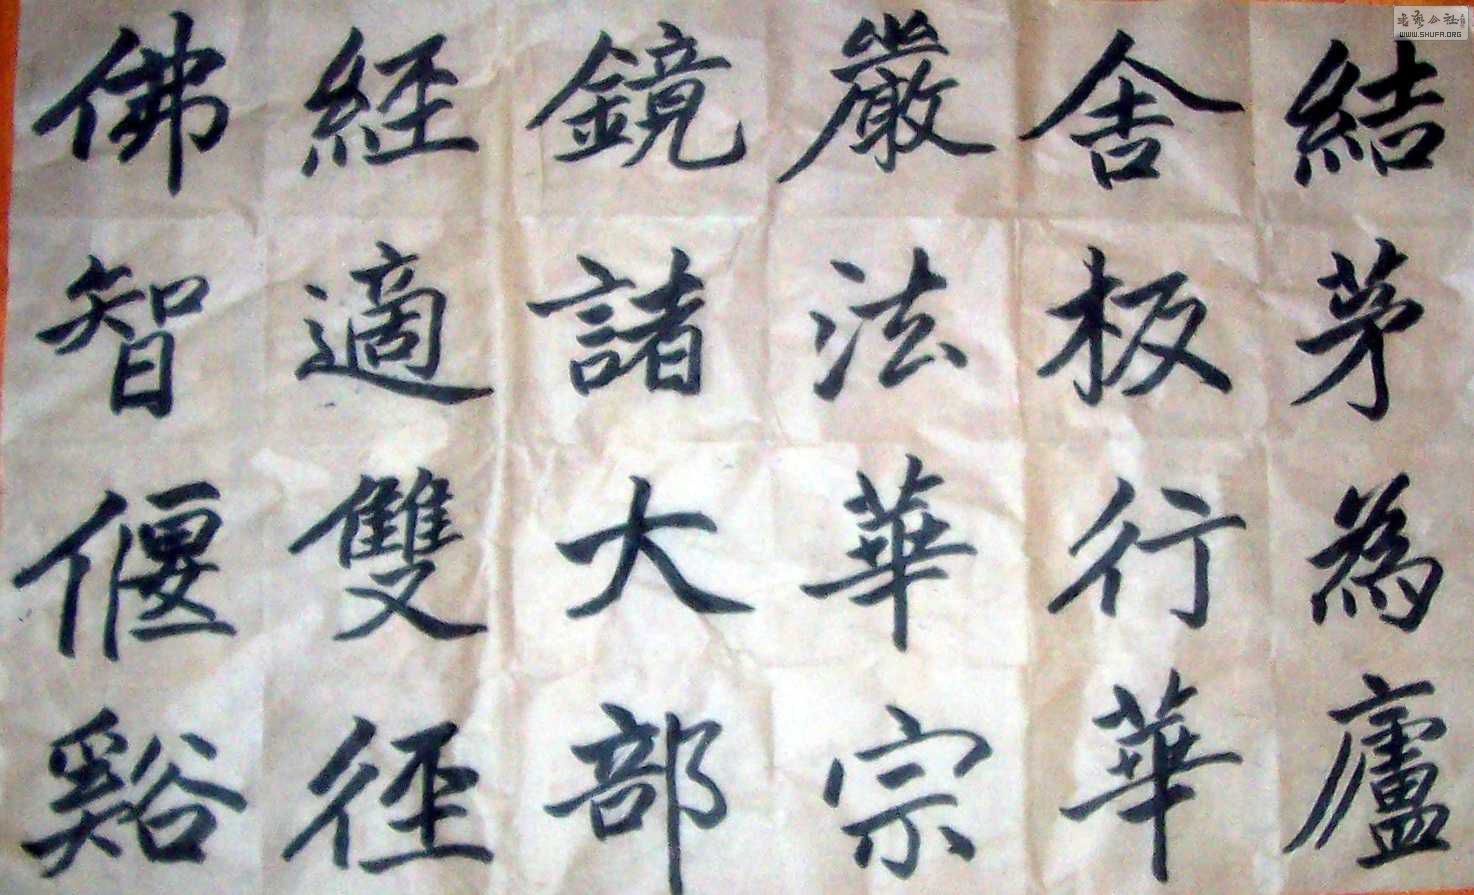 結茅為廬
舍板行華
嚴法華宗
鏡諸大部
經適雙徑
佛智偃谿
WWW.SHUFA.ORG